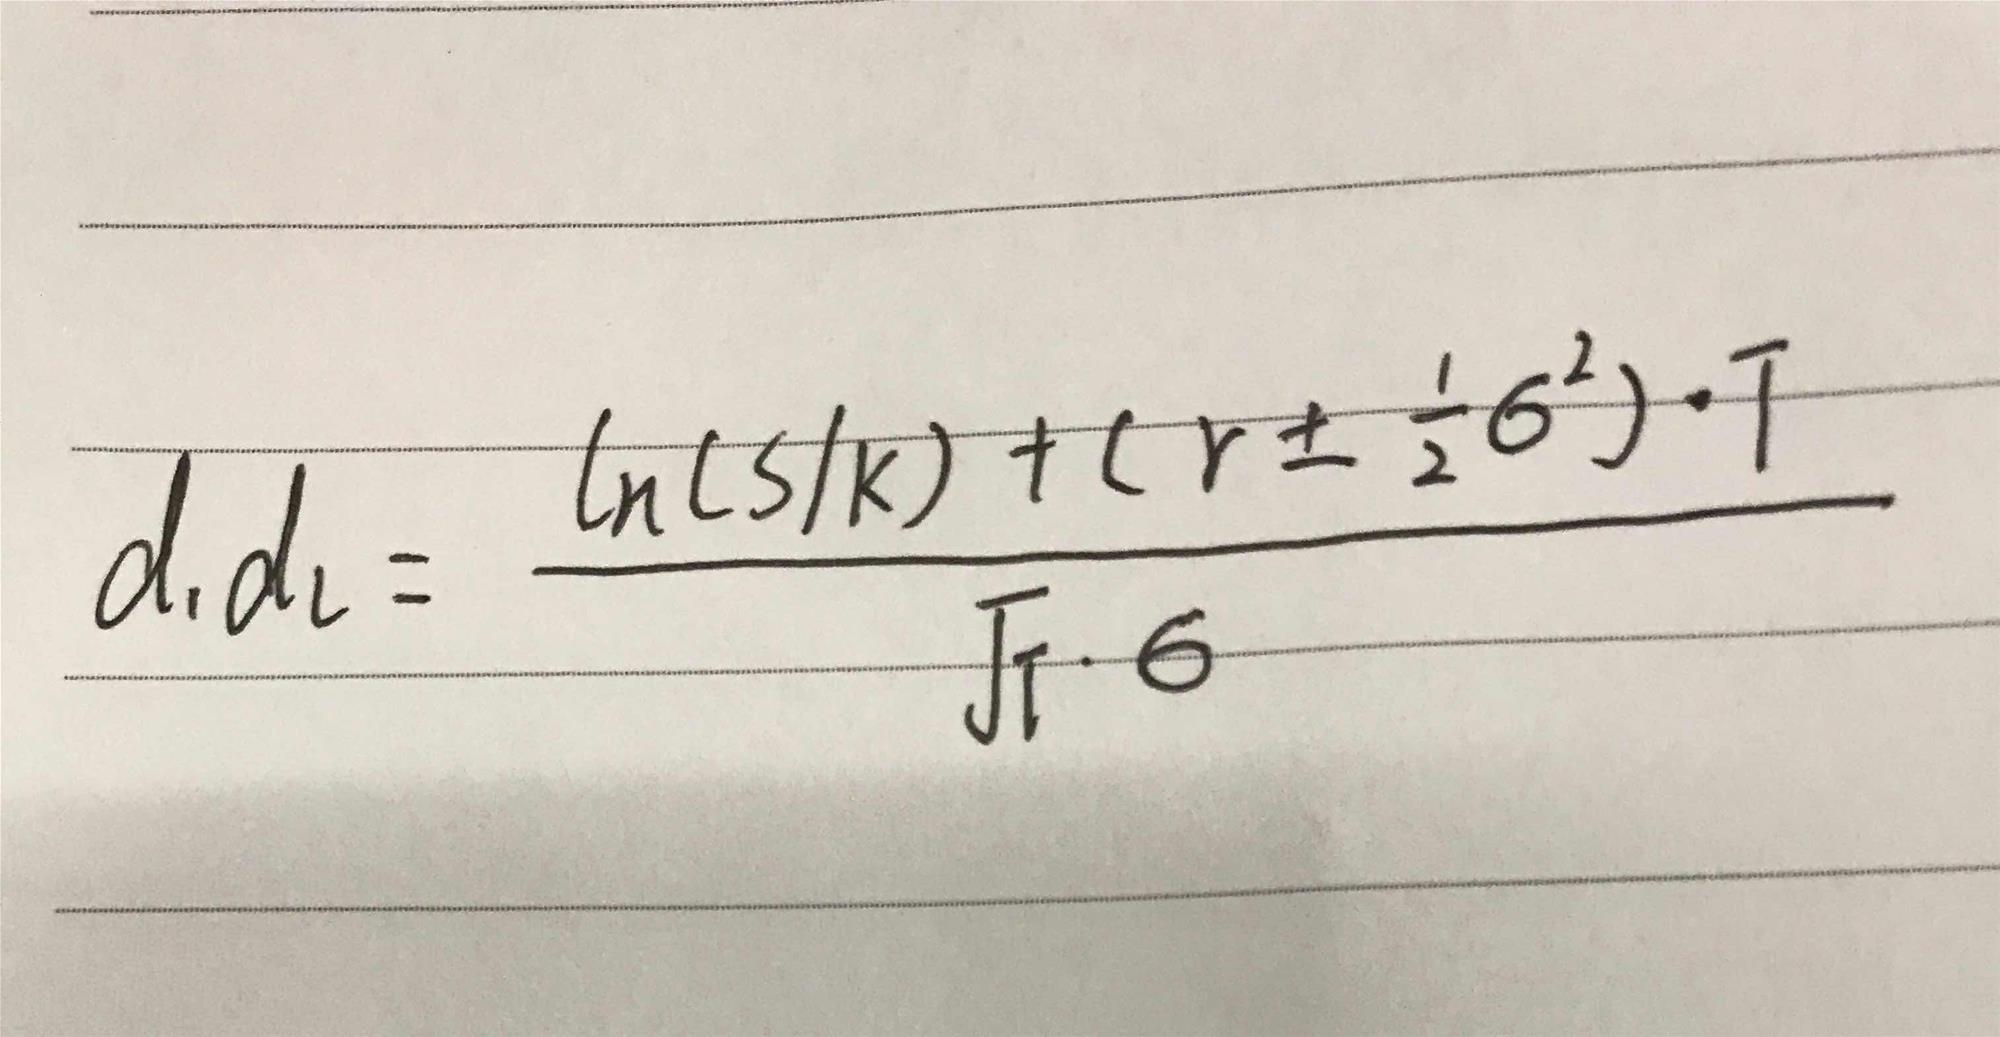 d₁ d₂ = \frac{ln(S/K) + (r ± \frac{1}{2}σ²)·T}{√T·σ}